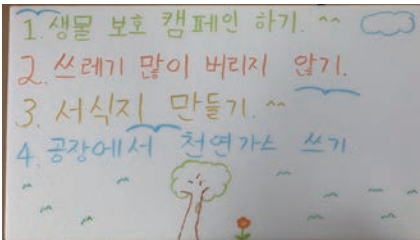 1. 생물 보호 캠페인 하기. ^^
2. 쓰레기 많이 버리지 않기.
3. 서식지 만들기. ^^
4. 공장에서 천연가스 쓰기